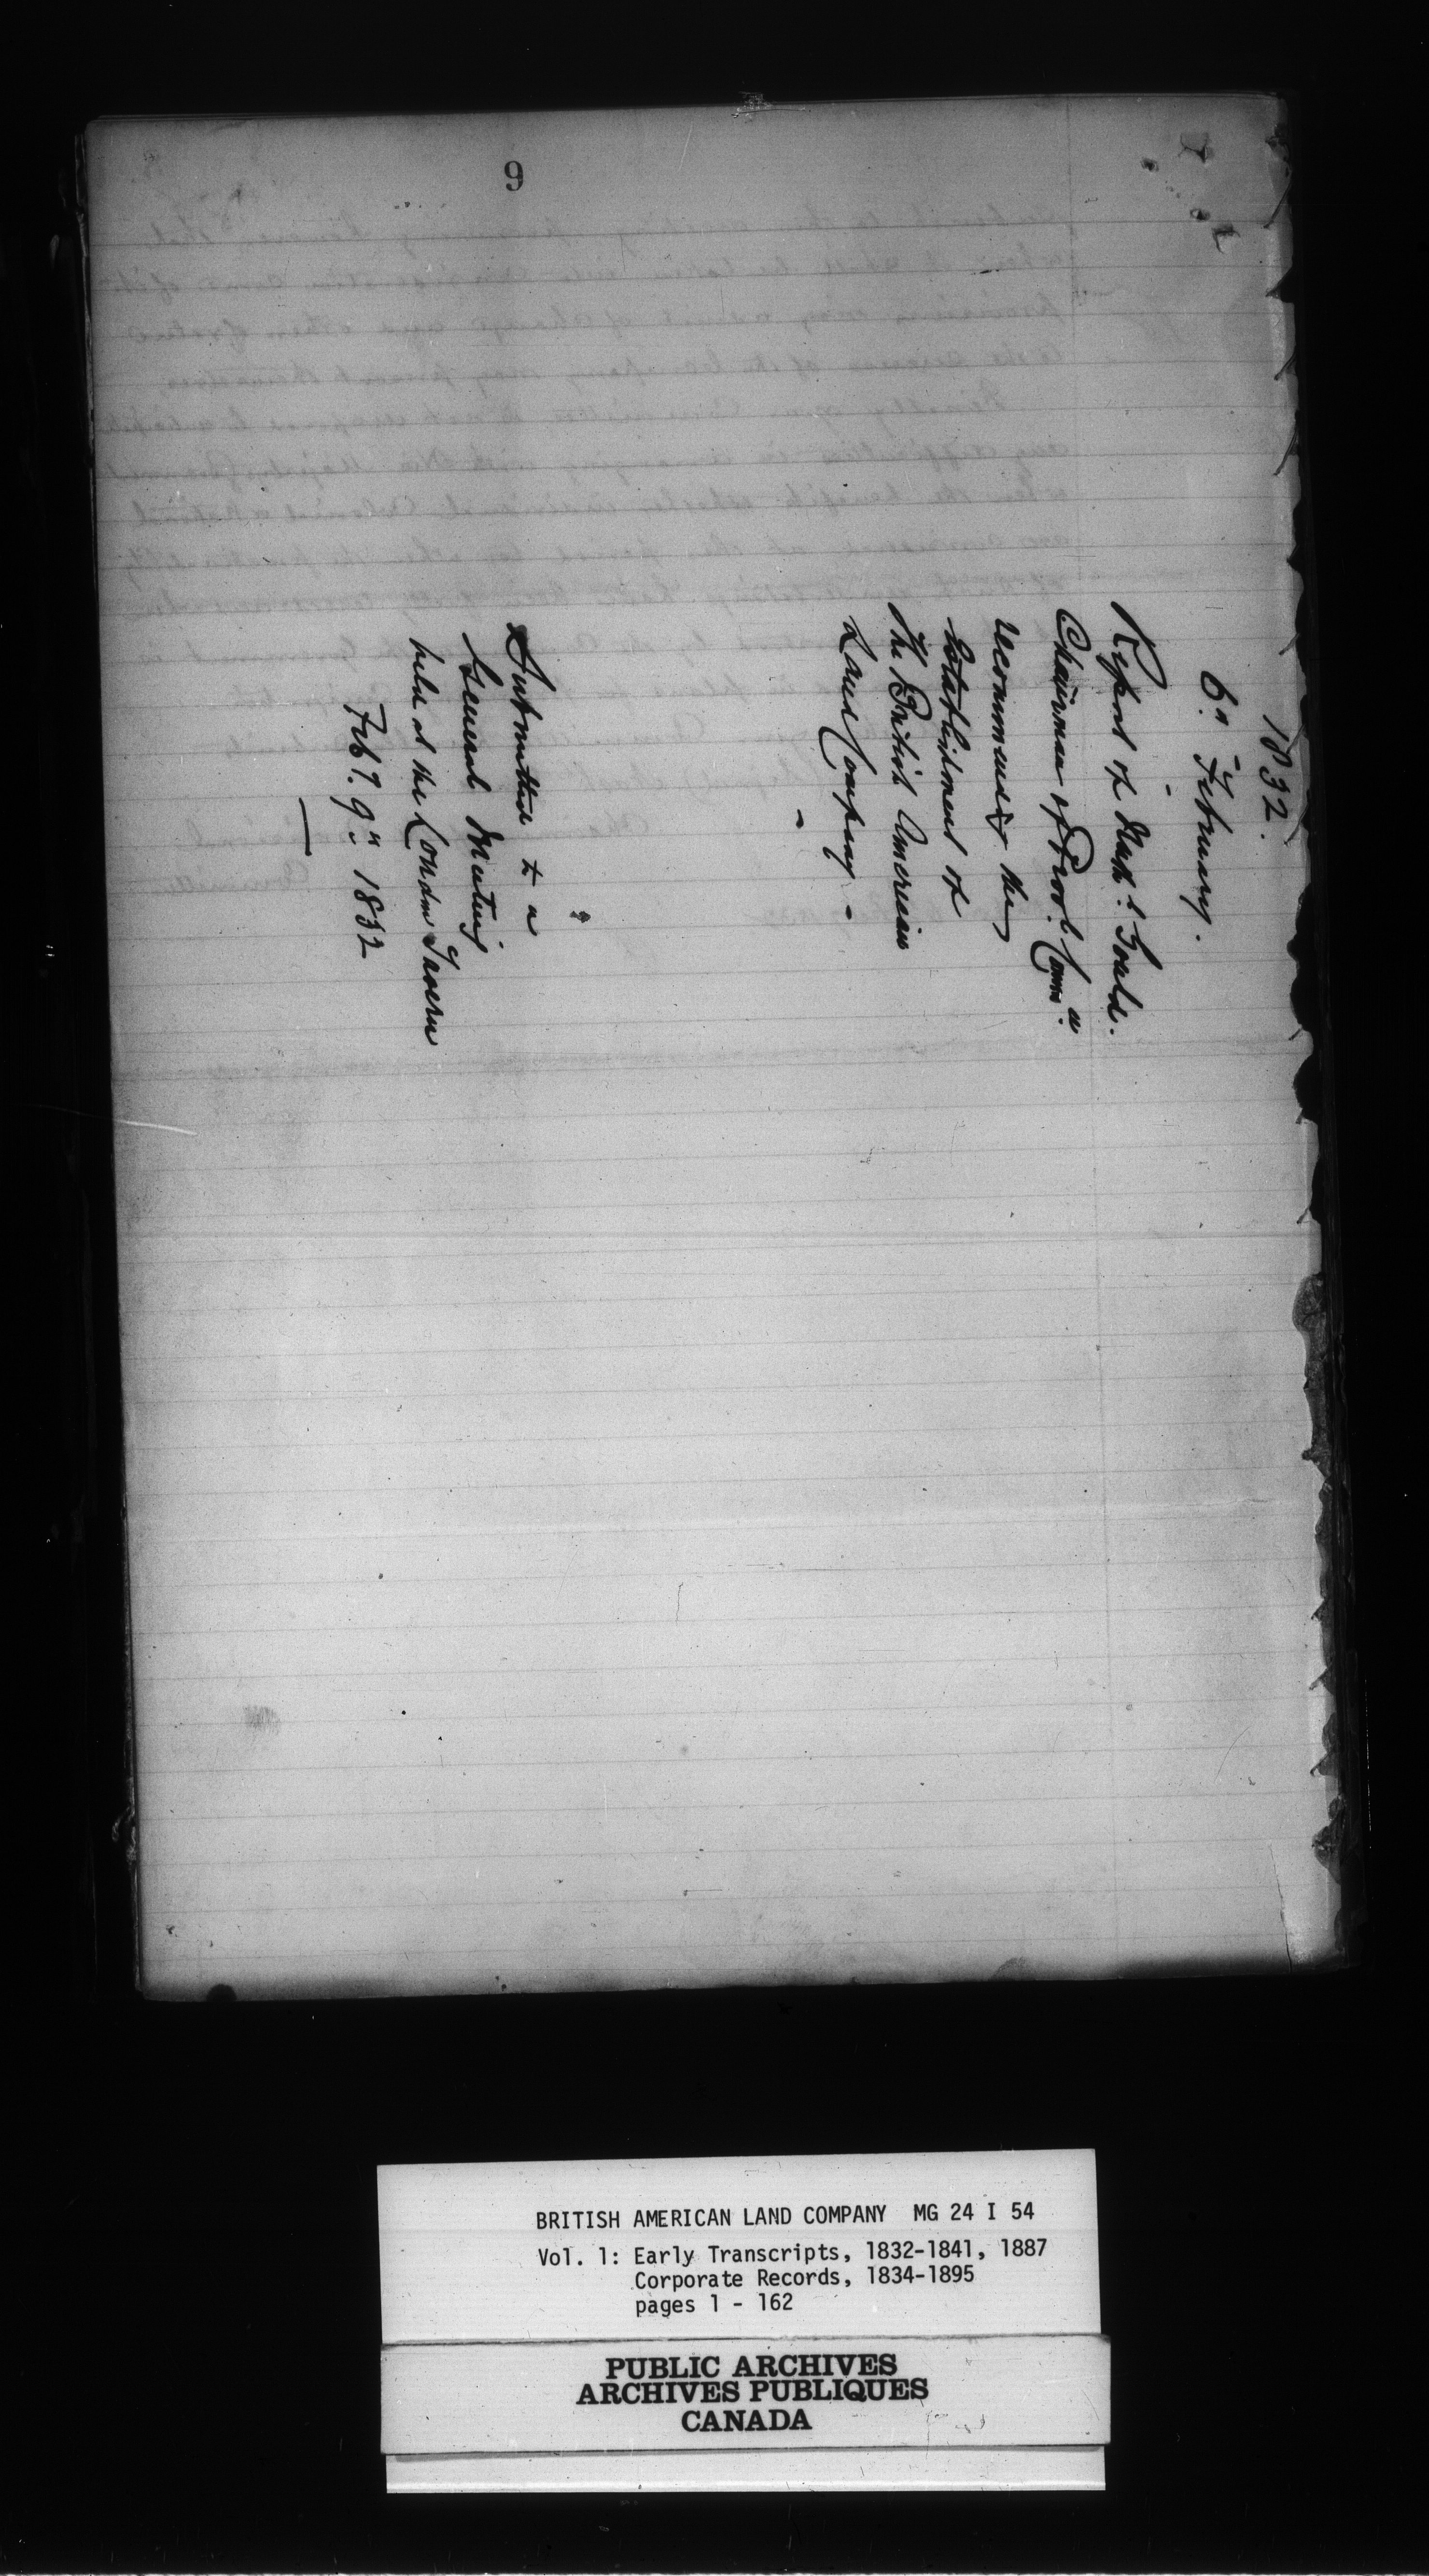 9
1832.
6th February.
Report of Nathl Gould.
Chairman of Provl Comn.
recommendg the
Establishment of
The British American
Land Company -
Submitted to a
General Meeting
held at the London Tavern
Feby. 9th 1832
BRITISH AMERICAN LAND COMPANY MG 24 I 54
Vol. 1: Early Transcripts, 1832-1841, 1887
Corporate Records, 1834-1895
pages 1 - 162
PUBLIC ARCHIVES
ARCHIVES PUBLIQUES
CANADA